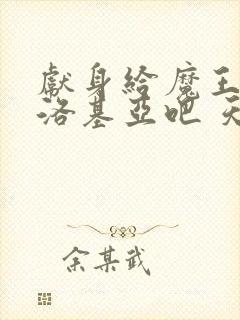 獻身給魔王
洛基亞吧 天
余某武